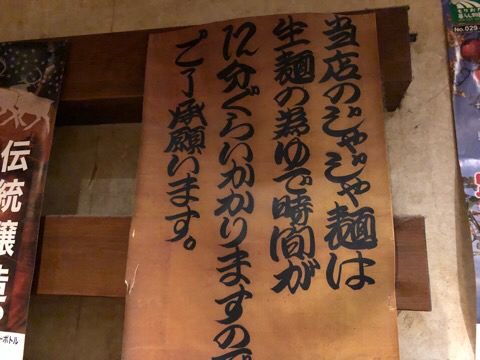 当店のじゃじゃ麺は
生麺の為ゆで時間が
12分ぐらいかかりますので
ご了承願います。
伝統醸造
ーボトル
No.029